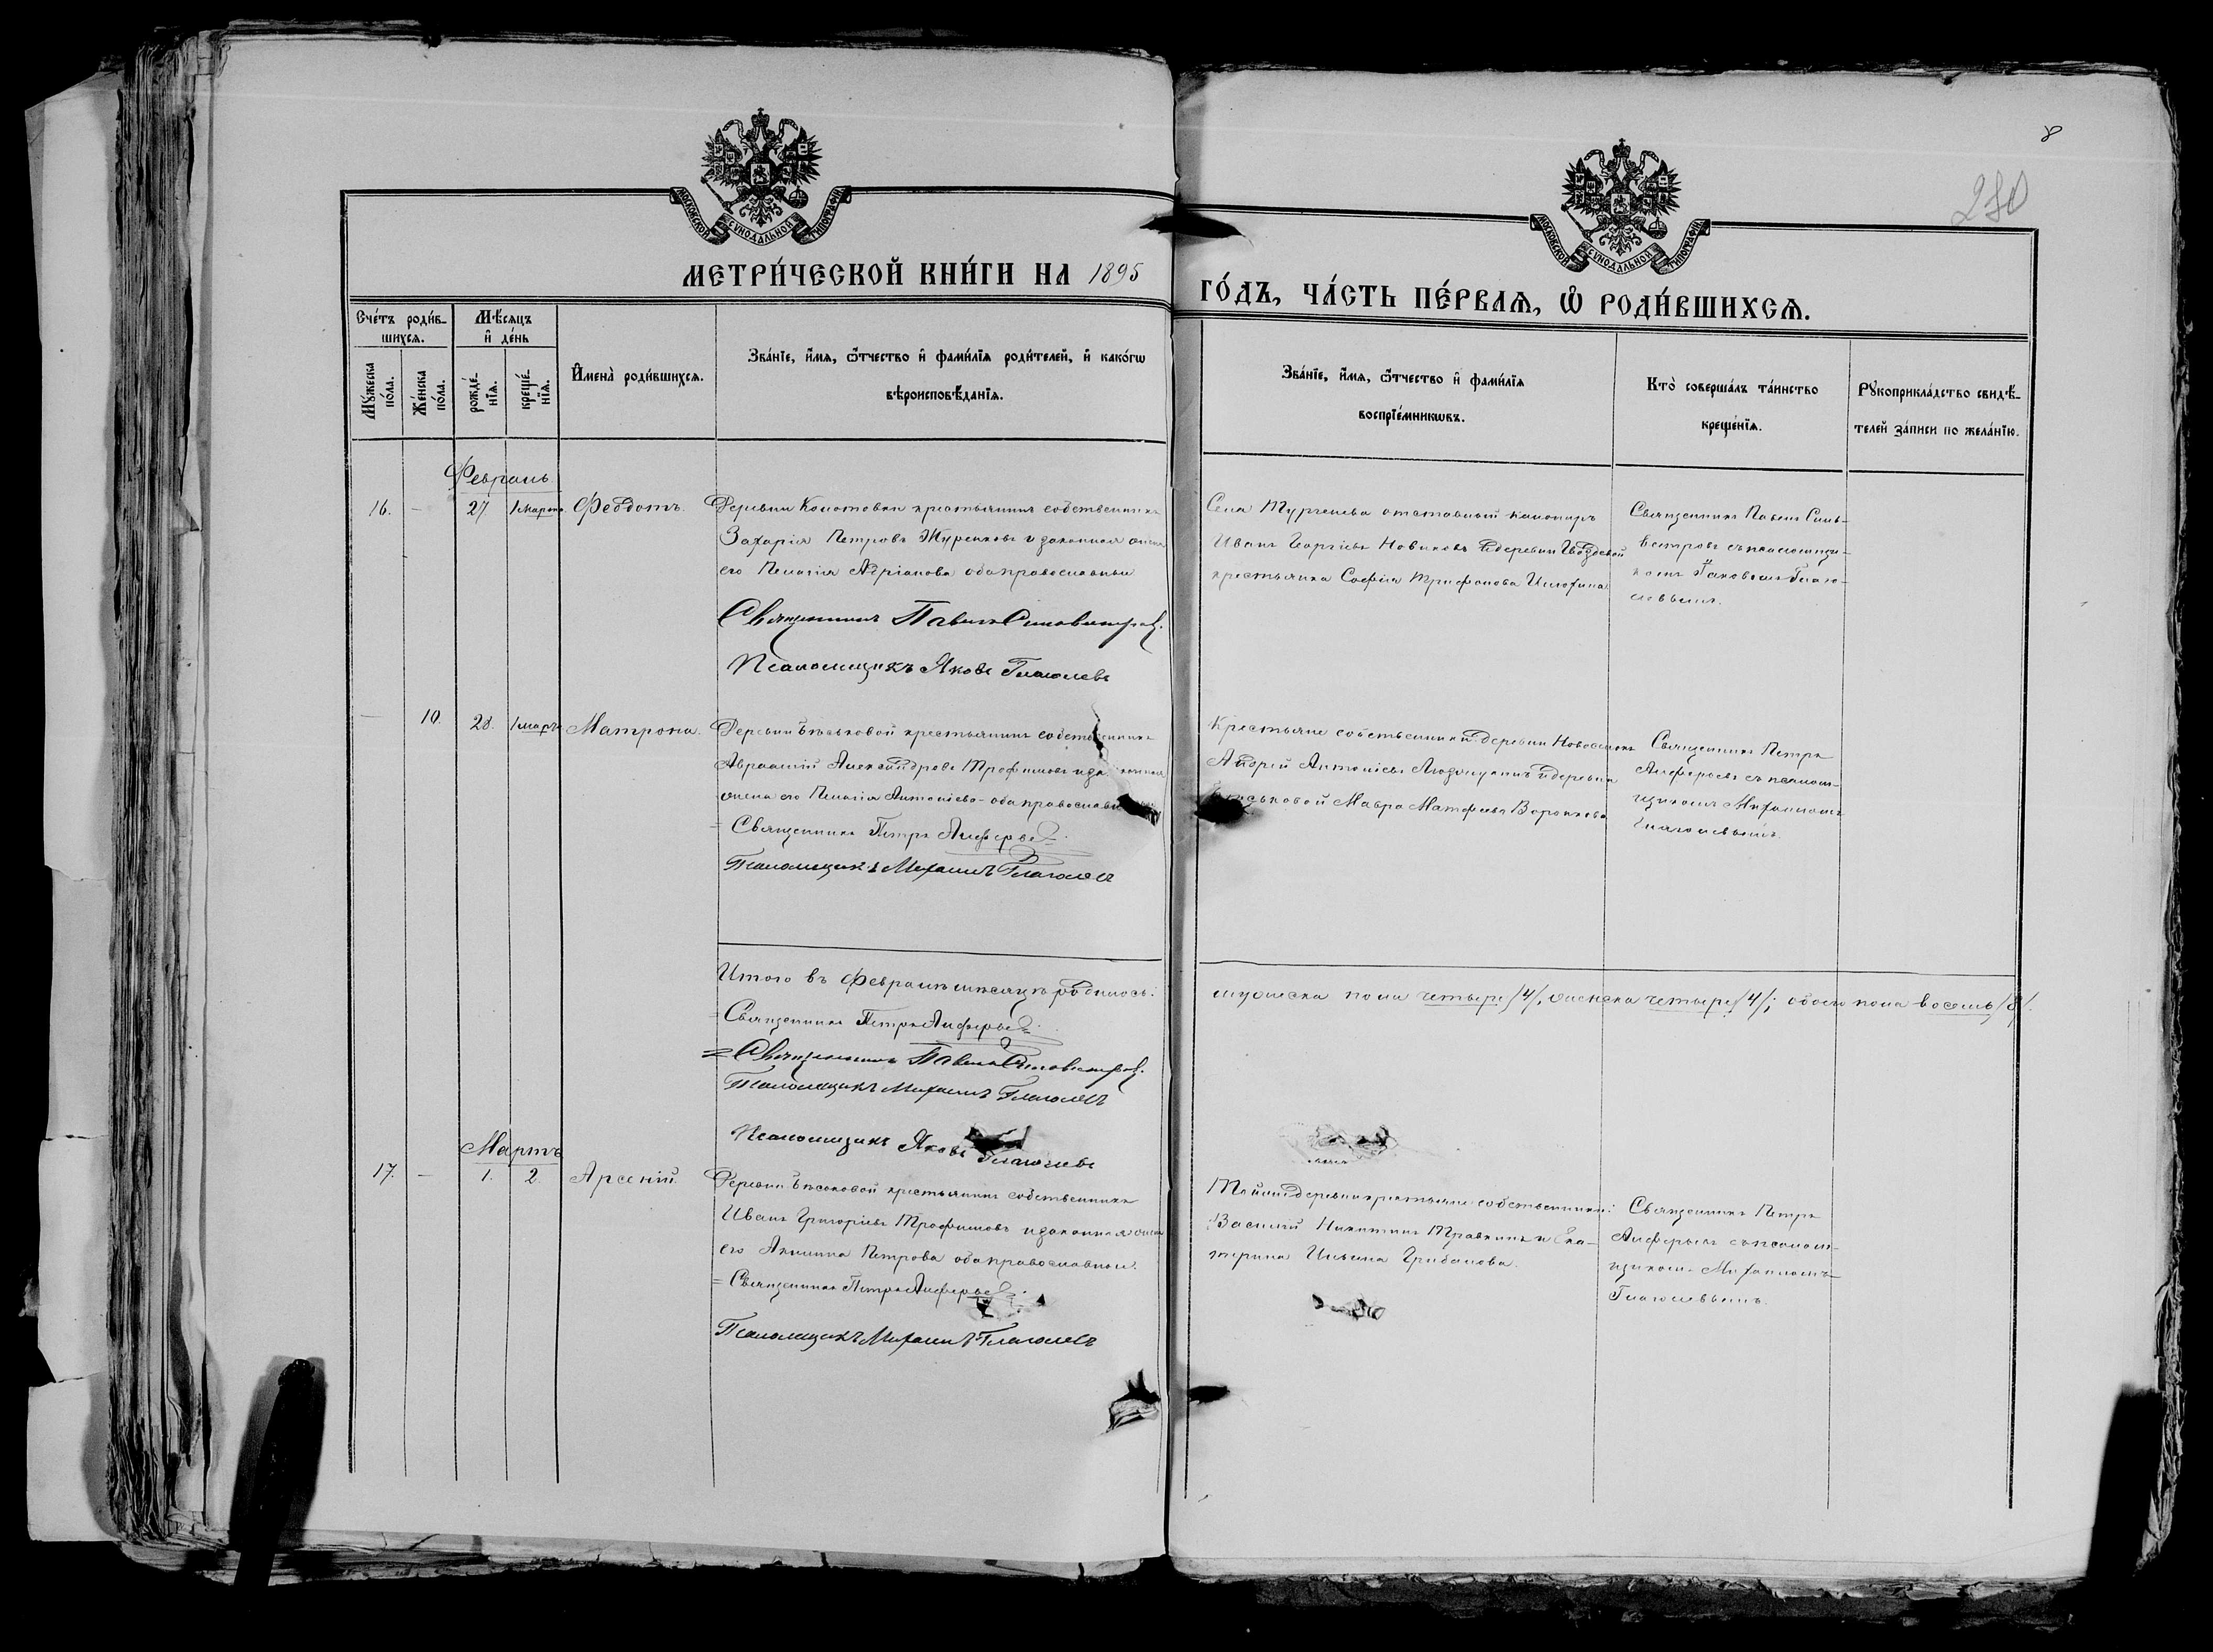 8
280
МОСКОВСКОЙ СУНОДАЛЬНОЙ ТИПОГРАФІИ
МОСКОВСКОЙ СУНОДАЛЬНОЙ ТИПОГРАФІИ
МЕТРИ́ЧЕСКОЙ КНИ́ГИ НА 1895
ГО́ДЪ, ЧА́СТЬ ПЕ́РВАѦ, Ѡ҆ РОДИ́ВШИХСѦ.
Сче́тъ роди́в-
шихсѧ.
Мѣ́сѧцъ
и҆ де́нь
Мꙋ́жеска
по́ла.
Же́нска
по́ла.
рожде́-
нїѧ.
креще́-
нїѧ.
И҆мена̀ роди́вшихсѧ.
Зва́нїе, и҆́мѧ, ѻ҆́тчество и҆ фами́лїѧ роди́телей, и҆ како́гѡ
вѣроисповѣ́данїѧ.
Зва́нїе, и҆́мѧ, ѻ҆́тчество и҆ фами́лїѧ
воспрїе́мникѡвъ.
Кто̀ соверша́лъ та́инство
креще́нїѧ.
Рꙋкоприкла́дство свидѣ́-
телей за́писи по жела́нїю.
Февраль
16. - 27 1 марта Феодотъ.
Деревни Кокотовки крестьянинъ собственникъ
Захарія Петровъ Журенковъ и законная жена
его Пелагія Адріанова оба православные
Священникъ Павелъ Сильвестровъ.
Псаломщикъ Яковъ Глаголевъ
Села Тургенева отставной канониръ
Иванъ Георгіевъ Новиковъ и деревни
крестьянка Софія Трифонова
Священникъ Павелъ Силь-
вестровъ съ псаломщи-
комъ Іаковомъ Глаго-
левымъ.
- 10. 28. 1 мар. Матрона.
Деревни крестьянинъ собственникъ
Авраамій Александровъ Трофимовъ и законная
жена его Пелагія Антоніева оба православные
= Священникъ Петръ Алферьевъ.
Псаломщикъ Михаилъ Глаголевъ
Крестьяне собственники деревни
Андрей Антоніевъ и деревни
Мавра Матфеева Воронкова
Священникъ Петръ
Алферьевъ съ псалом-
щикомъ Михаиломъ
Глаголевымъ.
Итого въ Февралѣ мѣсяцѣ родилось:
мужеска пола четыре /4/, женска четыре /4/; обоего пола восемь /8/.
= Священникъ Петръ Алферьевъ.
= Священникъ Павелъ Сильвестровъ.
Псаломщикъ Михаилъ Глаголевъ
Псаломщикъ Яковъ Глаголевъ
Мартъ
17. - 1. 2. Арсеній.
Деревни крестьянинъ собственникъ
Иванъ Григоріевъ Трофимовъ и законная жена
его Акилина Петрова оба православные.
= Священникъ Петръ Алферьевъ.
Псаломщикъ Михаилъ Глаголевъ
Той же деревни крестьяне собственники:
Василій Никитинъ Травкинъ и Ека-
терина Ильина Грибанова.
Священникъ Петръ
Алферьевъ съ псалом-
щикомъ Михаиломъ
Глаголевымъ.